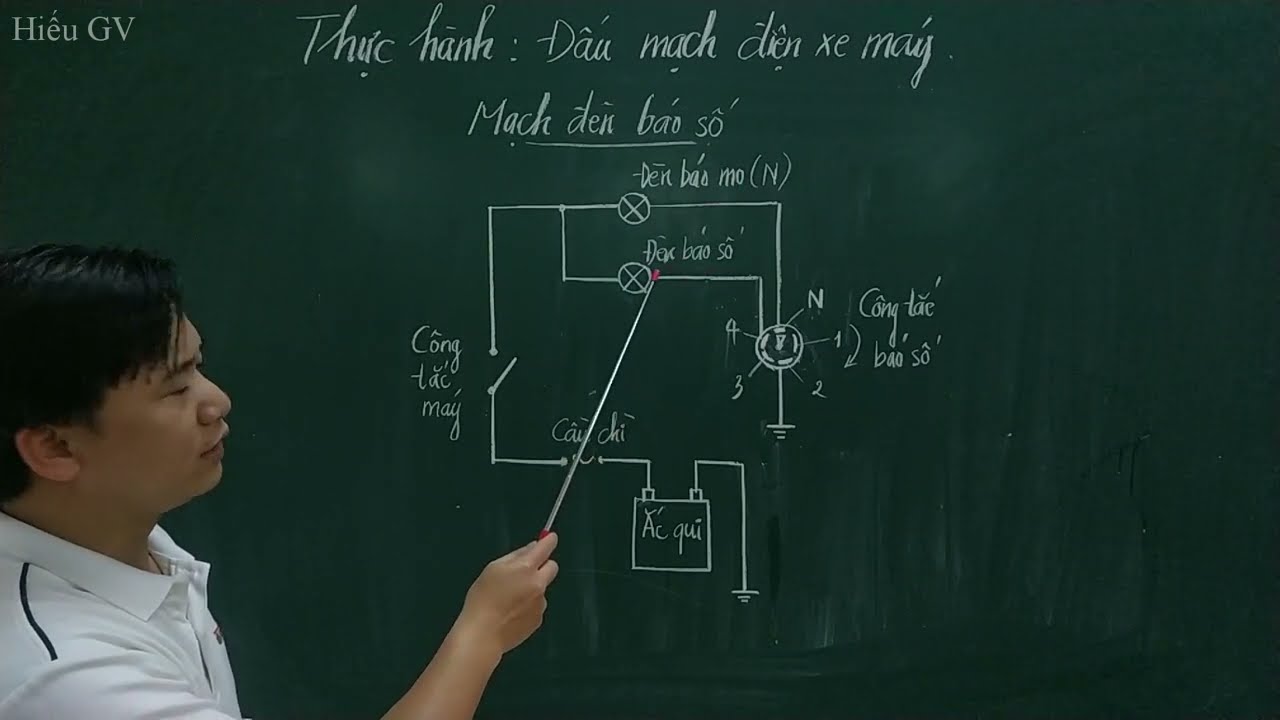 Hiếu GV
Thực hành: Đấu mạch điện xe máy.
Mạch đèn báo số
Đèn báo mo (N)
Đèn báo số
N
1
2
3
4
Công tắc
báo số
Công
tắc
máy
Cầu chì
Ắc qui